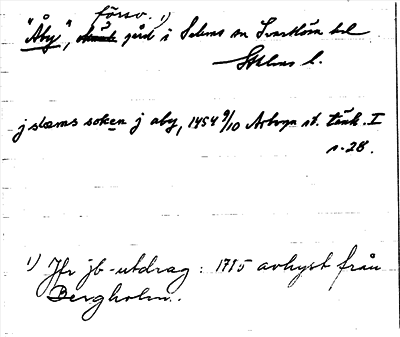 försv. 1)
"Åby", gård i Salems sn Svartlösa hd
Sthlms l.
j slæms soken j aby, 1454 9/10 Arboga st. tänk. I
s. 28.
1) Jfr jb-utdrag: 1715 avhyst från
Bergholm.